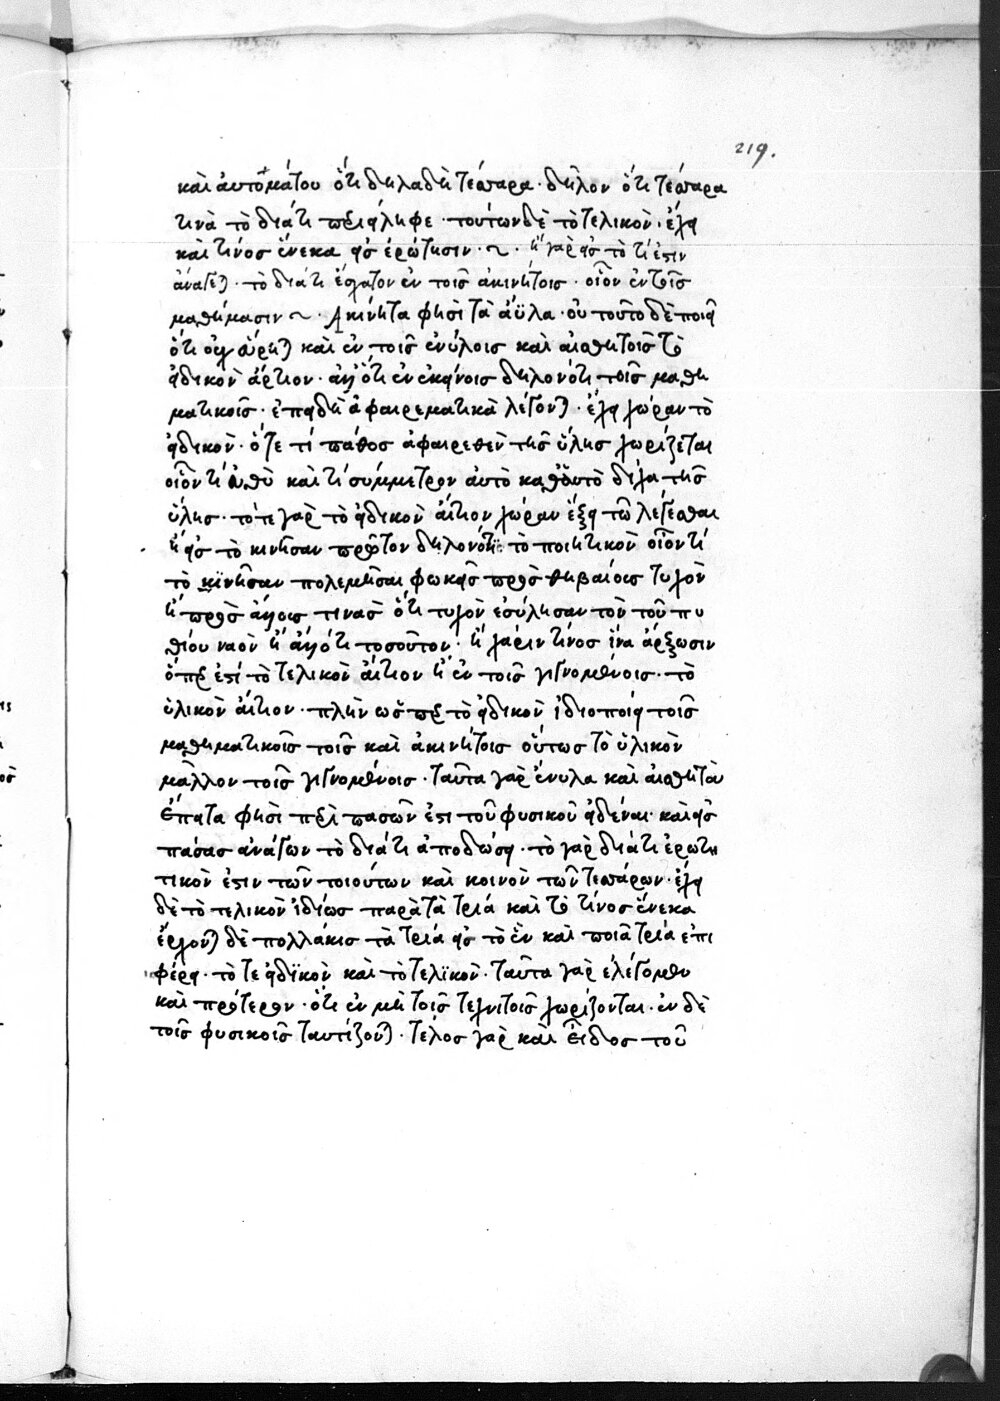 219.
καὶ αὐτομάτου ὅτι δηλαδὴ τέσσαρα · δῆλον ὅτι τέσσαρα
τινὰ τὸ διάτι περιείληφε · τούτων δὲ τὸ τελικὸν · ἔχει
καὶ τίνος ἕνεκα εἰς ἐρώτησιν ~ · ἢ γὰρ εἰς τὸ τί ἐστιν
ἀνάγεται · τὸ διάτι ἔσχατον ἐν τοῖς ἀκινήτοις · οἷον ἐν τοῖς
μαθήμασιν ~ · Ἀκίνητα φησὶ τὰ ἄϋλα · οὐ τοῦτο δὲ ποιεῖ
ὅτι οὐχ εὕρηται καὶ ἐν τοῖς ἐνύλοις καὶ αἰσθητοῖς τὸ
εἰδικὸν αἴτιον · ἀλλ' ὅτι ἐν ἐκείνοις δηλονότι τοῖς μαθη
ματικοῖς · ἐπειδὴ ἀφαιρεματικὰ λέγονται · ἔχει χώραν τὸ
εἰδικὸν · ὅτε τί πάθος ἀφαιρεθὲν τῆς ὕλης χωρίζεται
οἷον τί εὐθὺ καὶ τί σύμμετρον αὐτὸ καθ' αὑτὸ δίχα τῆς
ὕλης · τότε γὰρ τὸ εἰδικὸν αἴτιον χώραν ἕξει τῶ λέγεσθαι
ἢ εἰς τὸ κινῆσαν πρῶτον δηλονότι : τὸ ποιητικὸν οἷον τί
τὸ κινῆσαν πολεμῆσαι φωκεῖς πρὸς θηβαίοις τυχὸν
ἢ πρὸς ἄλλοις τινὰς ὅτι τυχὸν ἐσύλησαν τὸν τοῦ πυ
θίου ναὸν ἢ ἄλλό τι τοσοῦτον · ἢ χάριν τίνος ἵνα ἄρξωσιν
ὅπερ ἐστὶ τὸ τελικὸν αἴτιον ἢ ἐν τοῖς γιγνομένοις · τὸ
ὑλικὸν αἴτιον · πλὴν ὥσπερ τὸ εἰδικὸν ἰδιοποιεῖ τοῖς
μαθηματικοῖς τοῖς καὶ ἀκινήτοις οὕτως τὸ ὑλικὸν
μᾶλλον τοῖς γιγνομένοις · ταῦτα γὰρ ἔνυλα καὶ αἰσθητὰ
ἔπειτα φησὶ περὶ πασῶν ἐστὶ τοῦ φυσικοῦ εἰδέναι · καὶ εἰς
πάσας ἀνάγων τὸ διάτι ἀποδώσει · τὸ γὰρ διάτι ἐρωτη
τικὸν ἐστιν τῶν τοιούτων καὶ κοινὸν τῶν τεσσάρων · ἔχει
δὲ τὸ τελικὸν ἰδίως παρὰ τὰ τρία καὶ τὸ τίνος ἕνεκα
ἔρχονται δὲ πολλάκις τὰ τρία εἰς τὸ ἓν καὶ ποῖα τρία ἐπι
φέρει · τό τε εἰδικὸν καὶ τὸ τελικὸν · ταῦτα γὰρ ἐλέγομεν
καὶ πρότερον · ὅτι ἐν μὲν τοῖς τεχνιτοῖς χωρίζονται · ἐν δὲ
τοῖς φυσικοῖς ταυτίζονται · τέλος γὰρ καὶ εἶδος τοῦ